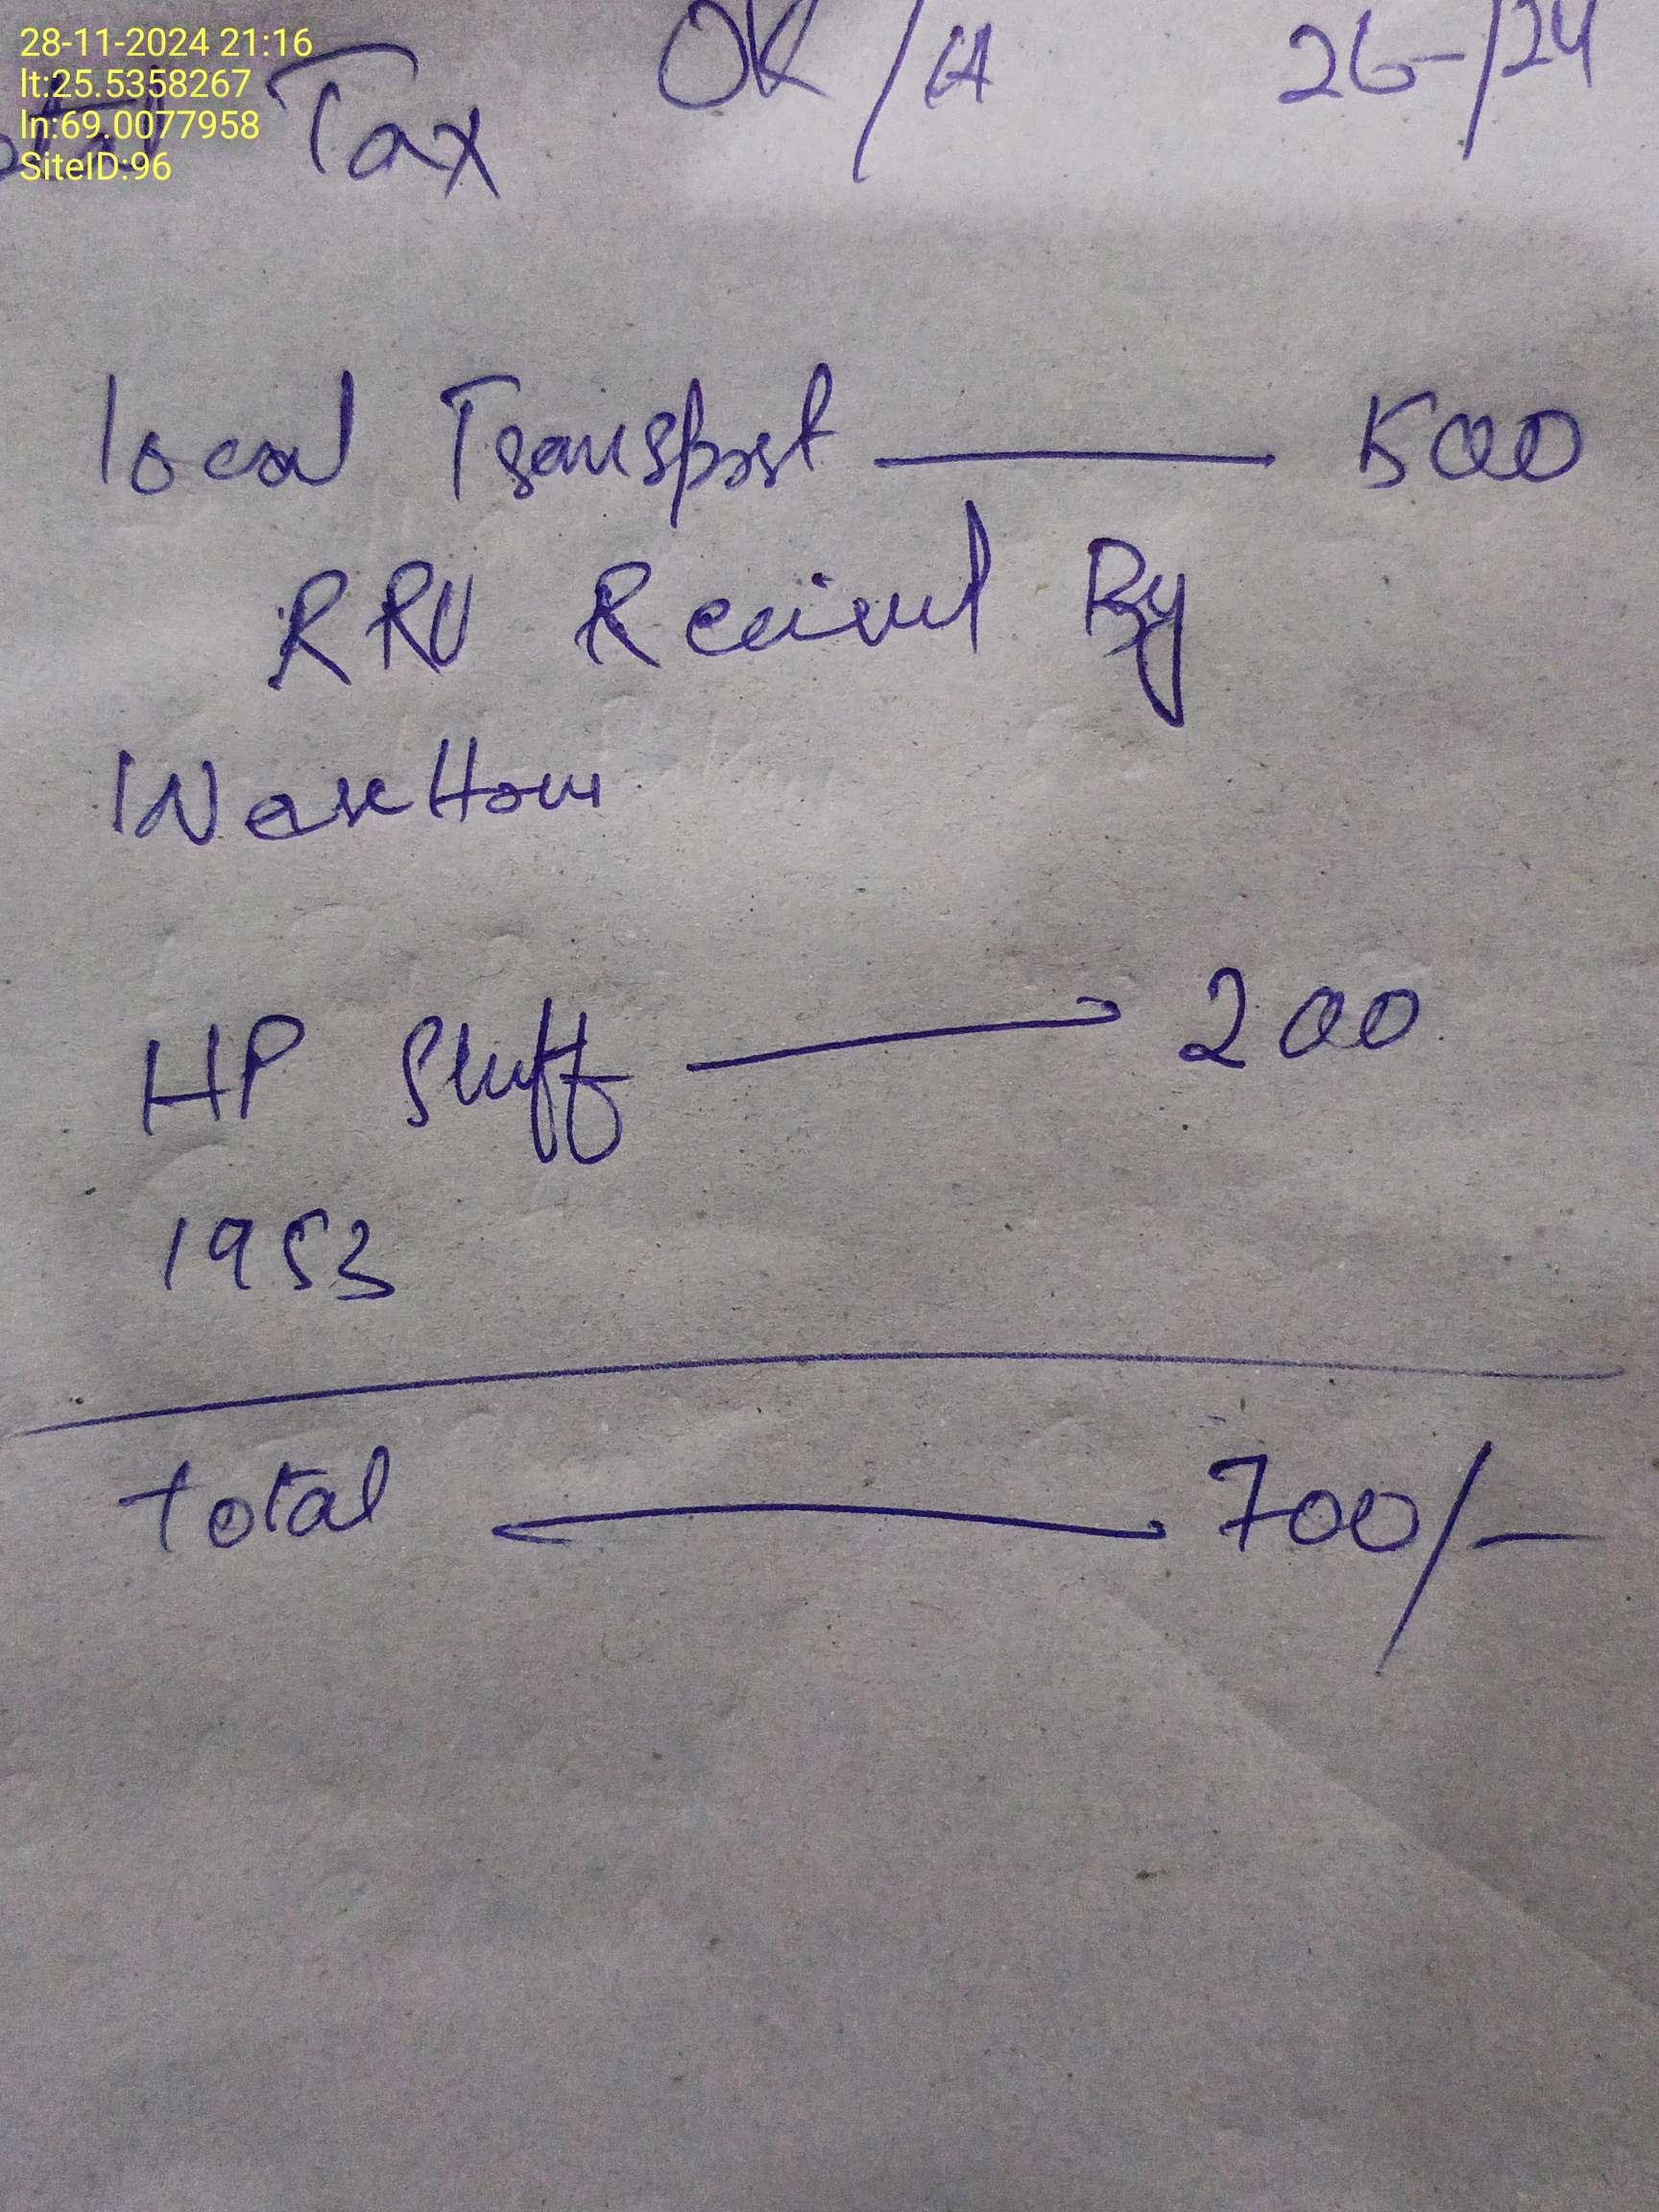 28-11-2024 21:16
lt:25.5358267
ln:69.0077958
SiteID:96
Tax OK / 26-/24
local Transport — 500
RRU Received By
WareHouse
HP Stuff — 200
1953
total — 700/-